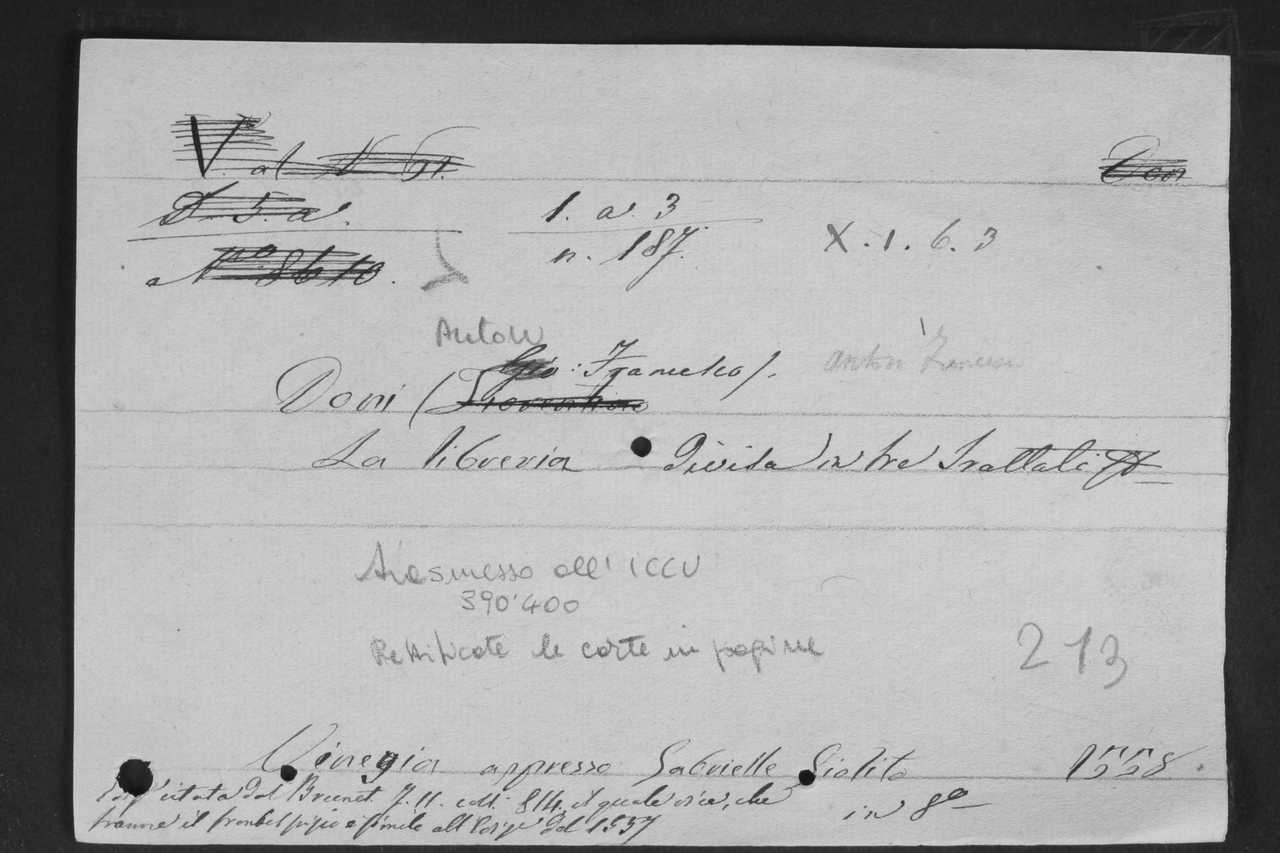 V. al
Don
D. 5. a.
1. a. 3
n. 187.
X. 1. 6. 3
N.º 8610.
Anton
Gio: Francesco).
Anton Francesco
Doni (
La libreria Divisa in tre Trattati
Trasmesso all' ICCU
390'400
Rettificate le carte in pagine
213
Vinegia appresso Gabrielle Giolito 1558.
in 8º
citata dal Brunet. T. II. col. 814. il quale dice, che
tranne il frontespizio è simile all' del 1557